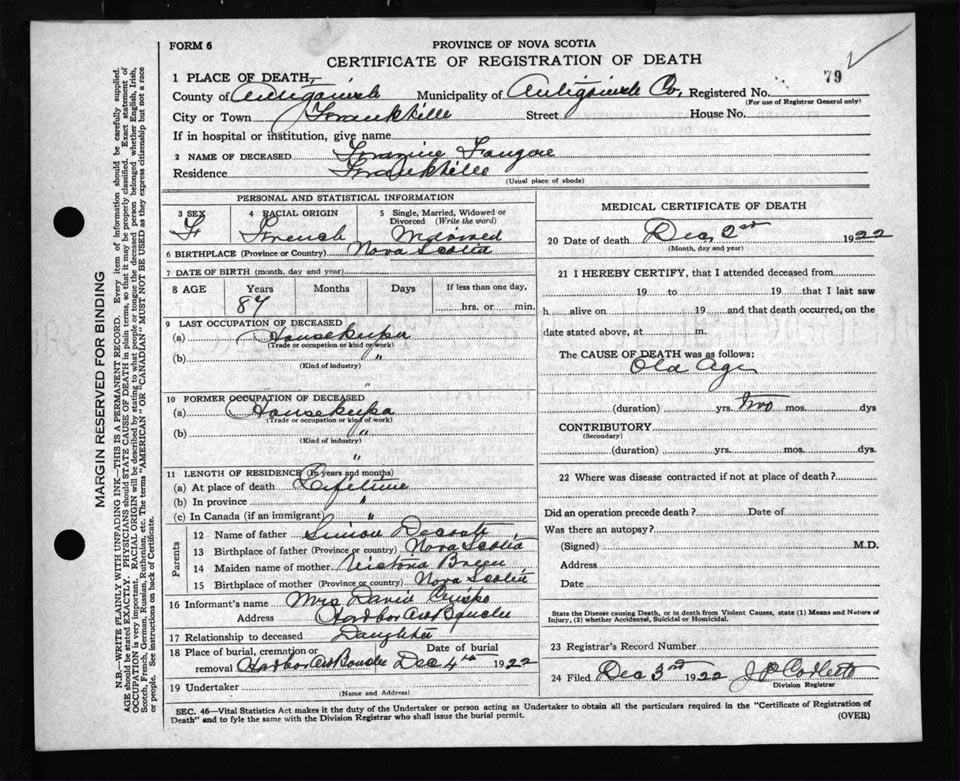 FORM 6
PROVINCE OF NOVA SCOTIA
CERTIFICATE OF REGISTRATION OF DEATH
79 2
1 PLACE OF DEATH,
County of Antigonish Municipality of Antigonish Co, Registered No.
(For use of Registrar General only)
City or Town Frankville Street House No.
If in hospital or institution, give name
2 NAME OF DECEASED
Residence Frankville
(Usual place of abode)
PERSONAL AND STATISTICAL INFORMATION
3 SEX 4 RACIAL ORIGIN 5 Single, Married, Widowed or Divorced (Write the word)
F French Widowed
6 BIRTHPLACE (Province or Country) Nova Scotia
7 DATE OF BIRTH (month, day and year)
8 AGE Years Months Days If less than one day,
87 hrs. or min.
9 LAST OCCUPATION OF DECEASED
(a) Housekeeper
(Trade or occupation or kind of work)
(b) "
(Kind of industry)
"
10 FORMER OCCUPATION OF DECEASED
(a) Housekeeper
(Trade or occupation or kind of work)
(b) "
(Kind of industry)
"
11 LENGTH OF RESIDENCE (In years and months)
(a) At place of death Lifetime
(b) In province "
(c) In Canada (if an immigrant) "
Parents
12 Name of father Simon
13 Birthplace of father (Province or country) Nova Scotia
14 Maiden name of mother
15 Birthplace of mother (Province or country) Nova Scotia
16 Informant's name Mrs David Crispo
Address Harbor Au Bouche
17 Relationship to deceased Daughter
18 Place of burial, cremation or removal Harbor Au Bouche Date of burial Dec 4th 1922
19 Undertaker
(Name and Address)
MEDICAL CERTIFICATE OF DEATH
20 Date of death Dec, 2nd 1922
(Month, day and year)
21 I HEREBY CERTIFY, that I attended deceased from
19 to 19 that I last saw
h alive on 19 and that death occurred, on the
date stated above, at m.
The CAUSE OF DEATH was as follows:
Old Age
(duration) yrs. Two mos. dys
CONTRIBUTORY
(Secondary)
(duration) yrs. mos. dys.
22 Where was disease contracted if not at place of death?
Did an operation precede death? Date of
Was there an autopsy?
(Signed) M.D.
Address
Date
State the Disease causing Death, or in death from Violent Causes, state (1) Means and Nature of
Injury, (2) whether Accidental, Suicidal or Homicidal.
23 Registrar's Record Number
24 Filed Dec 3rd 1922
Division Registrar
SEC. 46—Vital Statistics Act makes it the duty of the Undertaker or person acting as Undertaker to obtain all the particulars required in the "Certificate of Registration of
Death" and to fyle the same with the Division Registrar who shall issue the burial permit.
(OVER)
MARGIN RESERVED FOR BINDING
N.B.—WRITE PLAINLY WITH UNFADING INK—THIS IS A PERMANENT RECORD. Every item of information should be carefully supplied.
AGE should be stated EXACTLY. PHYSICIANS should STATE CAUSE OF DEATH in plain terms, so that it may be properly classified. Exact statement of
OCCUPATION is very important. RACIAL ORIGIN will be described by stating to what people or tongue the deceased person belonged whether English, Irish,
Scotch, French, German, Russian, Ruthenian, etc. The terms "AMERICAN" OR "CANADIAN" MUST NOT BE USED as they express citizenship but not a race
or people. See instructions on back of Certificate.